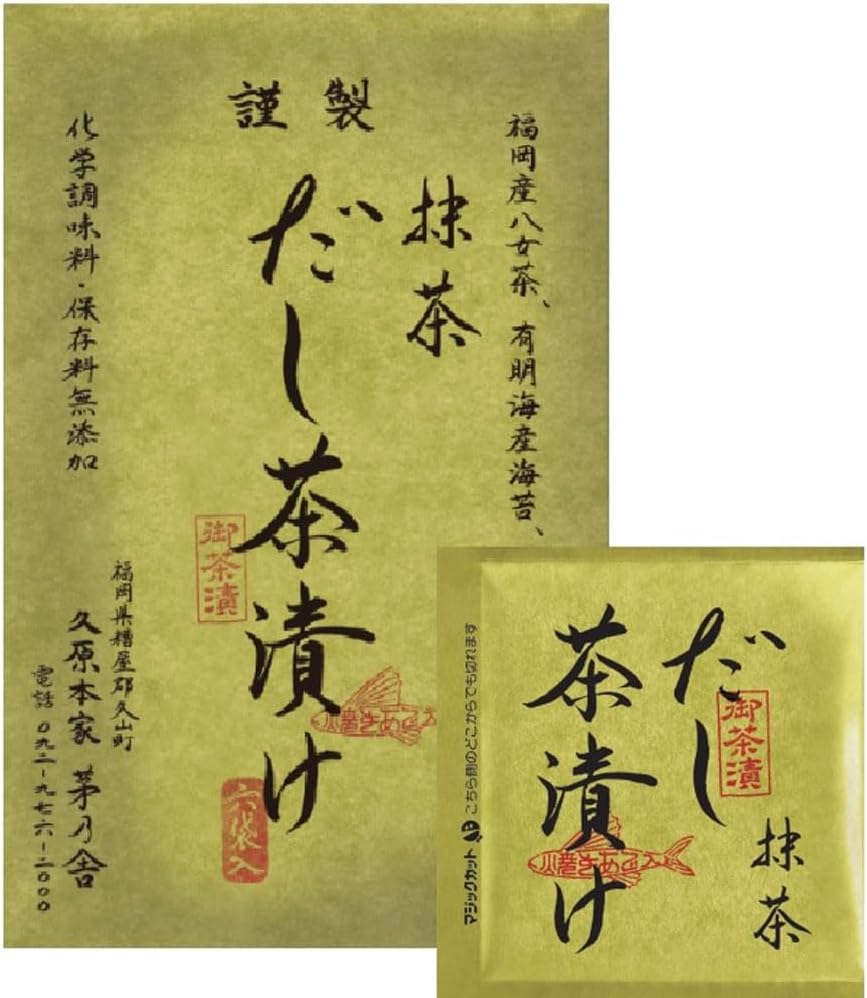 謹製
福岡産八女茶、有明海産海苔、
抹茶
だし茶漬け
御茶漬
焼きあご入
六袋入
化学調味料・保存料無添加
福岡県糟屋郡久山町
久原本家 茅乃舎
電話〇九二-九七六-二〇〇〇
だし
茶漬け
抹茶
御茶漬
焼きあご入
マジックカット こちら側のどこからでも切れます